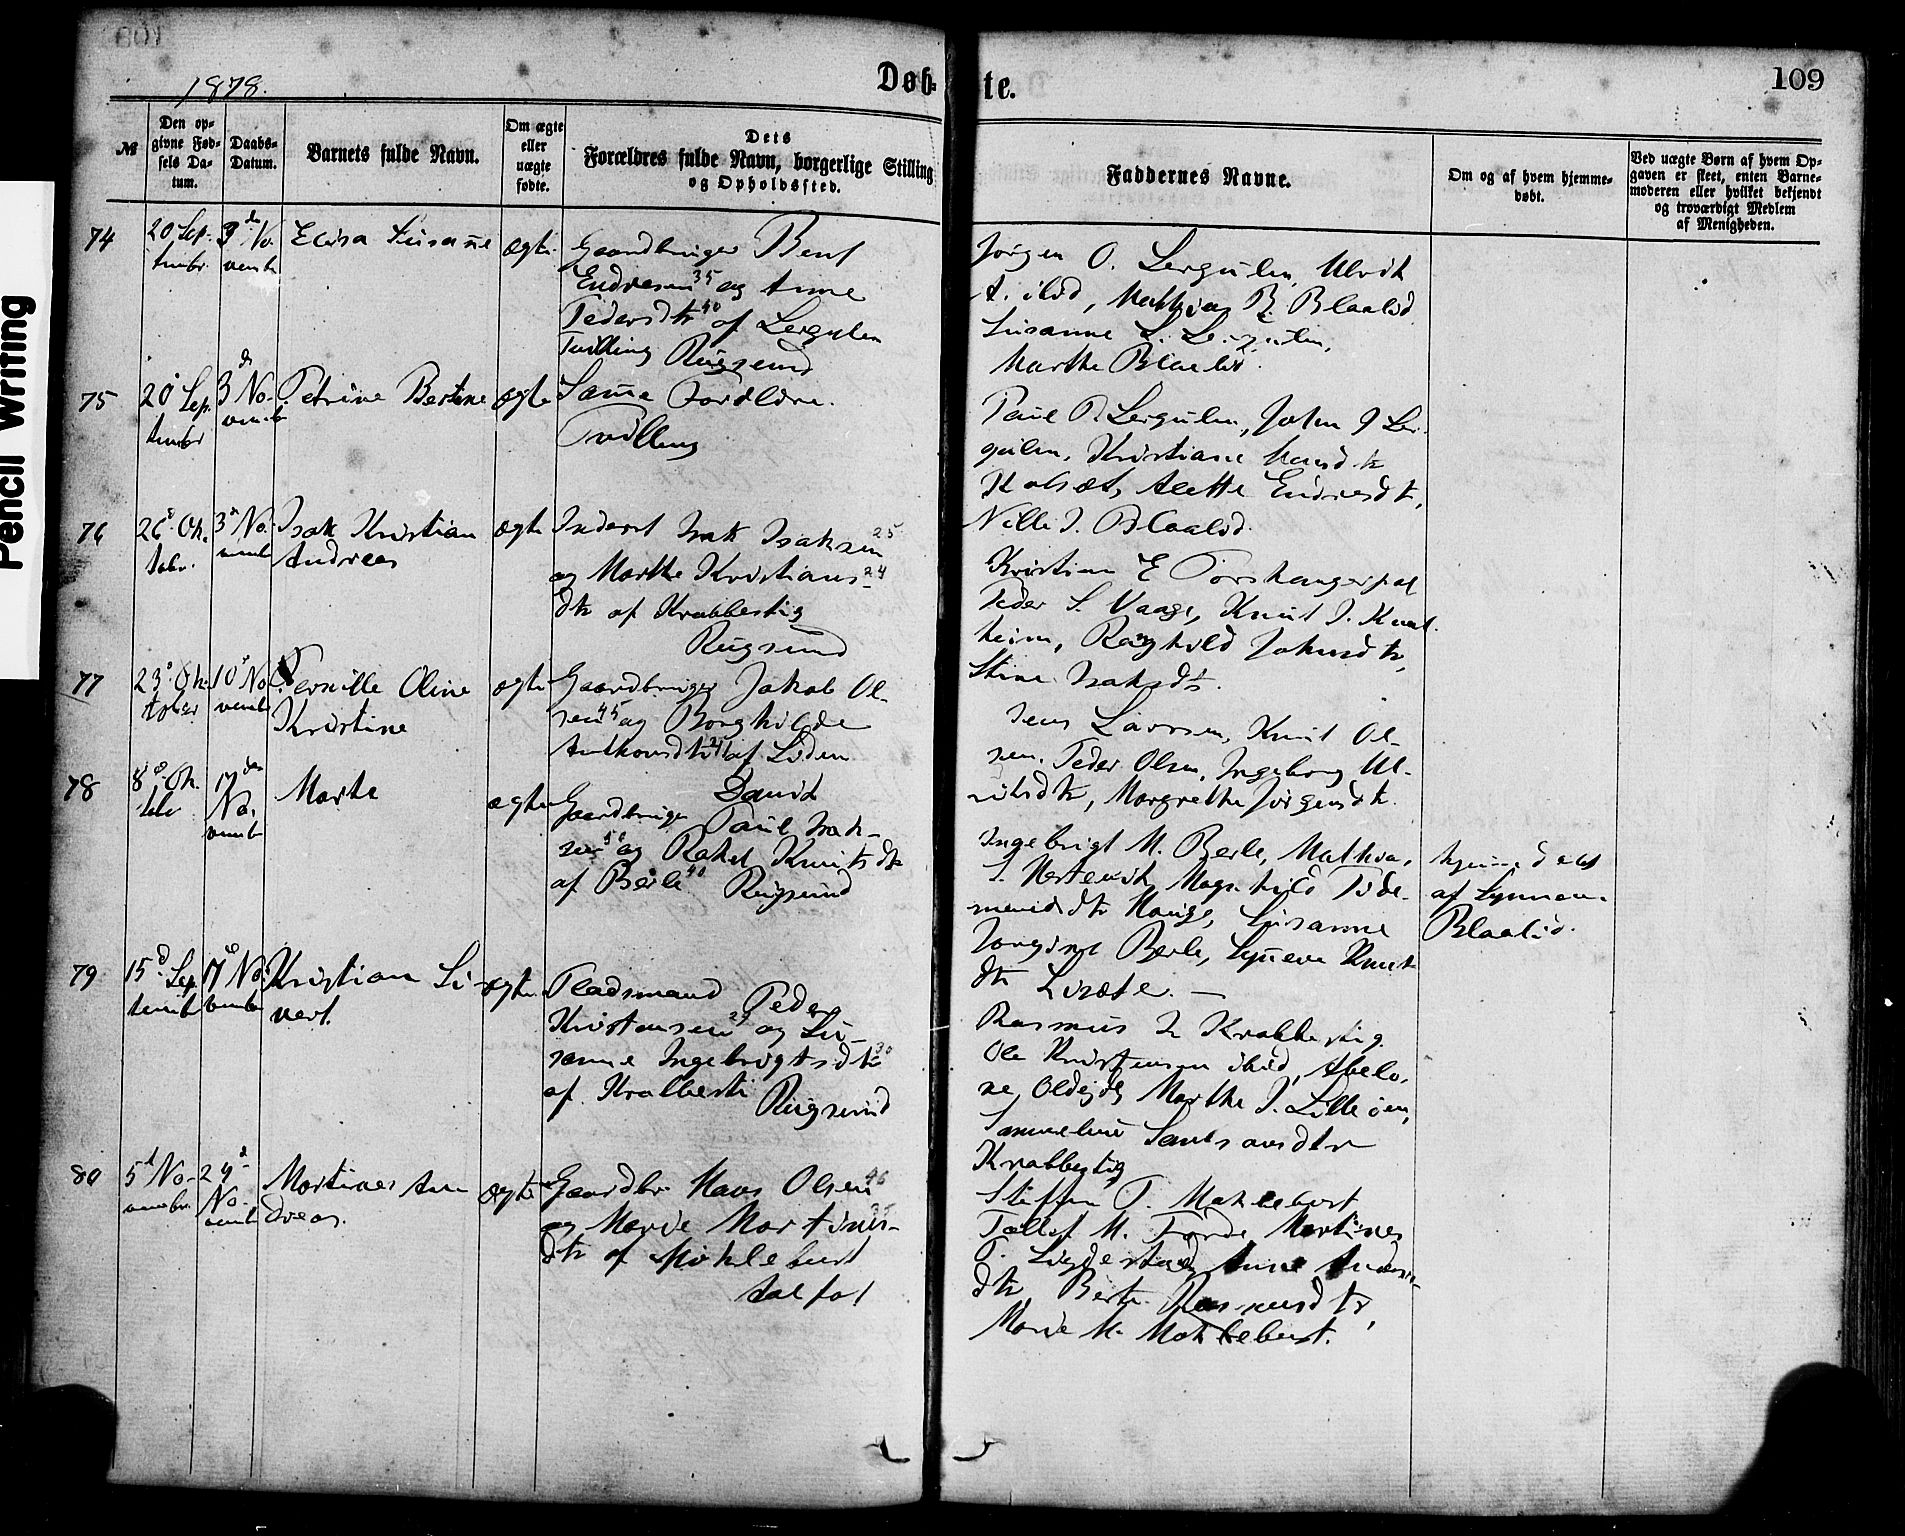 Pencil Writing
1878.
Døb-
te.
109
№
Den op-
givne Fød-
sels Da-
tum.
Daabs-
Datum.
Barnets fulde Navn.
Om ægte
eller
uægte
fødte.
Dets
Forældres fulde Navn, borgerlige Stilling
og Opholdssted.
Faddernes Navne.
Om og af hvem hjemme-
døbt.
Ved uægte Børn af hvem Op-
gaven er skeet, enten Barne-
moderen eller hvilket bekjendt
og troværdigt Medlem
af Menigheden.
74
20 Sep-
tembr.
3de No-
vemb
Elisa Susanne
ægte
Gaardbruger Bent
Endresen 35 og Anne
Pedersdtr 40 af Lergulen
Tvilling Rugsund
Jørgen O. Lergulen, Ulrik
A. ibid, Mathias R. Blaalid
Susanne L. Lergulen,
Marthe Blaalid.
75
20 Sep
tembr
3de No-
vemb
Petrine Bertine
ægte
Samme Forældre.
Tvilling
Paul P. Lergulen, John J Ler-
gulen, Kristiane Hansdtr
Kalsæt, Alette Endresdtr,
Nille J. Blaalid.
76
26de Ok-
tobr.
3de No-
vemb
Isak Kristian
Andreas
ægte
Inderst Isak Isaksen 25
og Marthe Kristians 24
dtr af Krabbestig
Rugsund
Kristian E Torskangerpol
Peder S. Vaage, Knut J.
heim, Raghild Johnsdtr,
Stine Isaksdtr.
77
23de Ok-
tober
10de No
vemb
Pernille Oline
Kristine
ægte
Gaardbruger Jakob Ol-
sen 45 og Borghilde
Anthonsdtr 41 af Liden
Jens Larsen, Knut Ol-
sen, Peder Olsen, Ingeborg Ul-
riksdtr, Margrethe Jørgensdtr.
78
8de Ok-
tobr
17de
No-
vemb
Marta
ægte
David
Gaardbruger Paul Isak-
sen 50 og Rakel Knutsdtr
af Berle 40 Rugsund
Ingebrigt M. Berle, Mathias
S. Hestevik, Magnhild Tide-
mandsdtr Hauge, Susanne
Jørgine Berle, Synneve Knuts
dtr Lisæte. —
hjemmedøbt
af Synneve
Blaalid.
79
15de Sep
temb
17de No
vemb
Kristian Si-
vert.
ægte
Pladsmand Peder
Kristensen 29 og Su-
sanne Ingebrigtsdtr 30
af Krabbesti
Rugsund
Rasmus I. Krabbestig
Ole Kristensen ibid, Abelo-
ne Oldeide Marthe J. Lilleøen,
Samueline Samsonsdtr
Krabbestig
80
5te No-
vembr.
24de
No-
vemb
Martines An-
dreas.
ægte
Gaardbr. Hans Olsen 46
og Marie Martinus- 35
dtr af Möhlebust
Aalfot
Steffen T. Møhlebust
Tollef M. Førde Martines
T. Anne Anders-
dtr, Berte Rasmusdtr,
Marie M. Møhlebust.